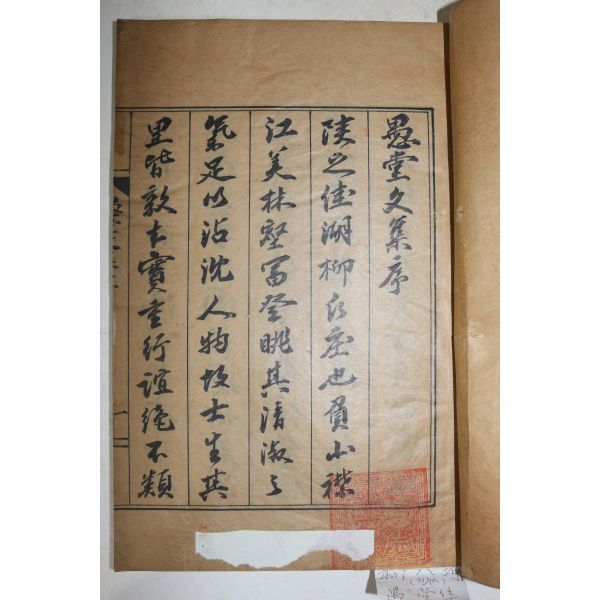 愚堂文集序
陜之佳湖柳氏庄也負山襟
江美林壑富登眺其清淑之
氣足以沾沈人物故士生其
里皆敦本實重行誼絶不類